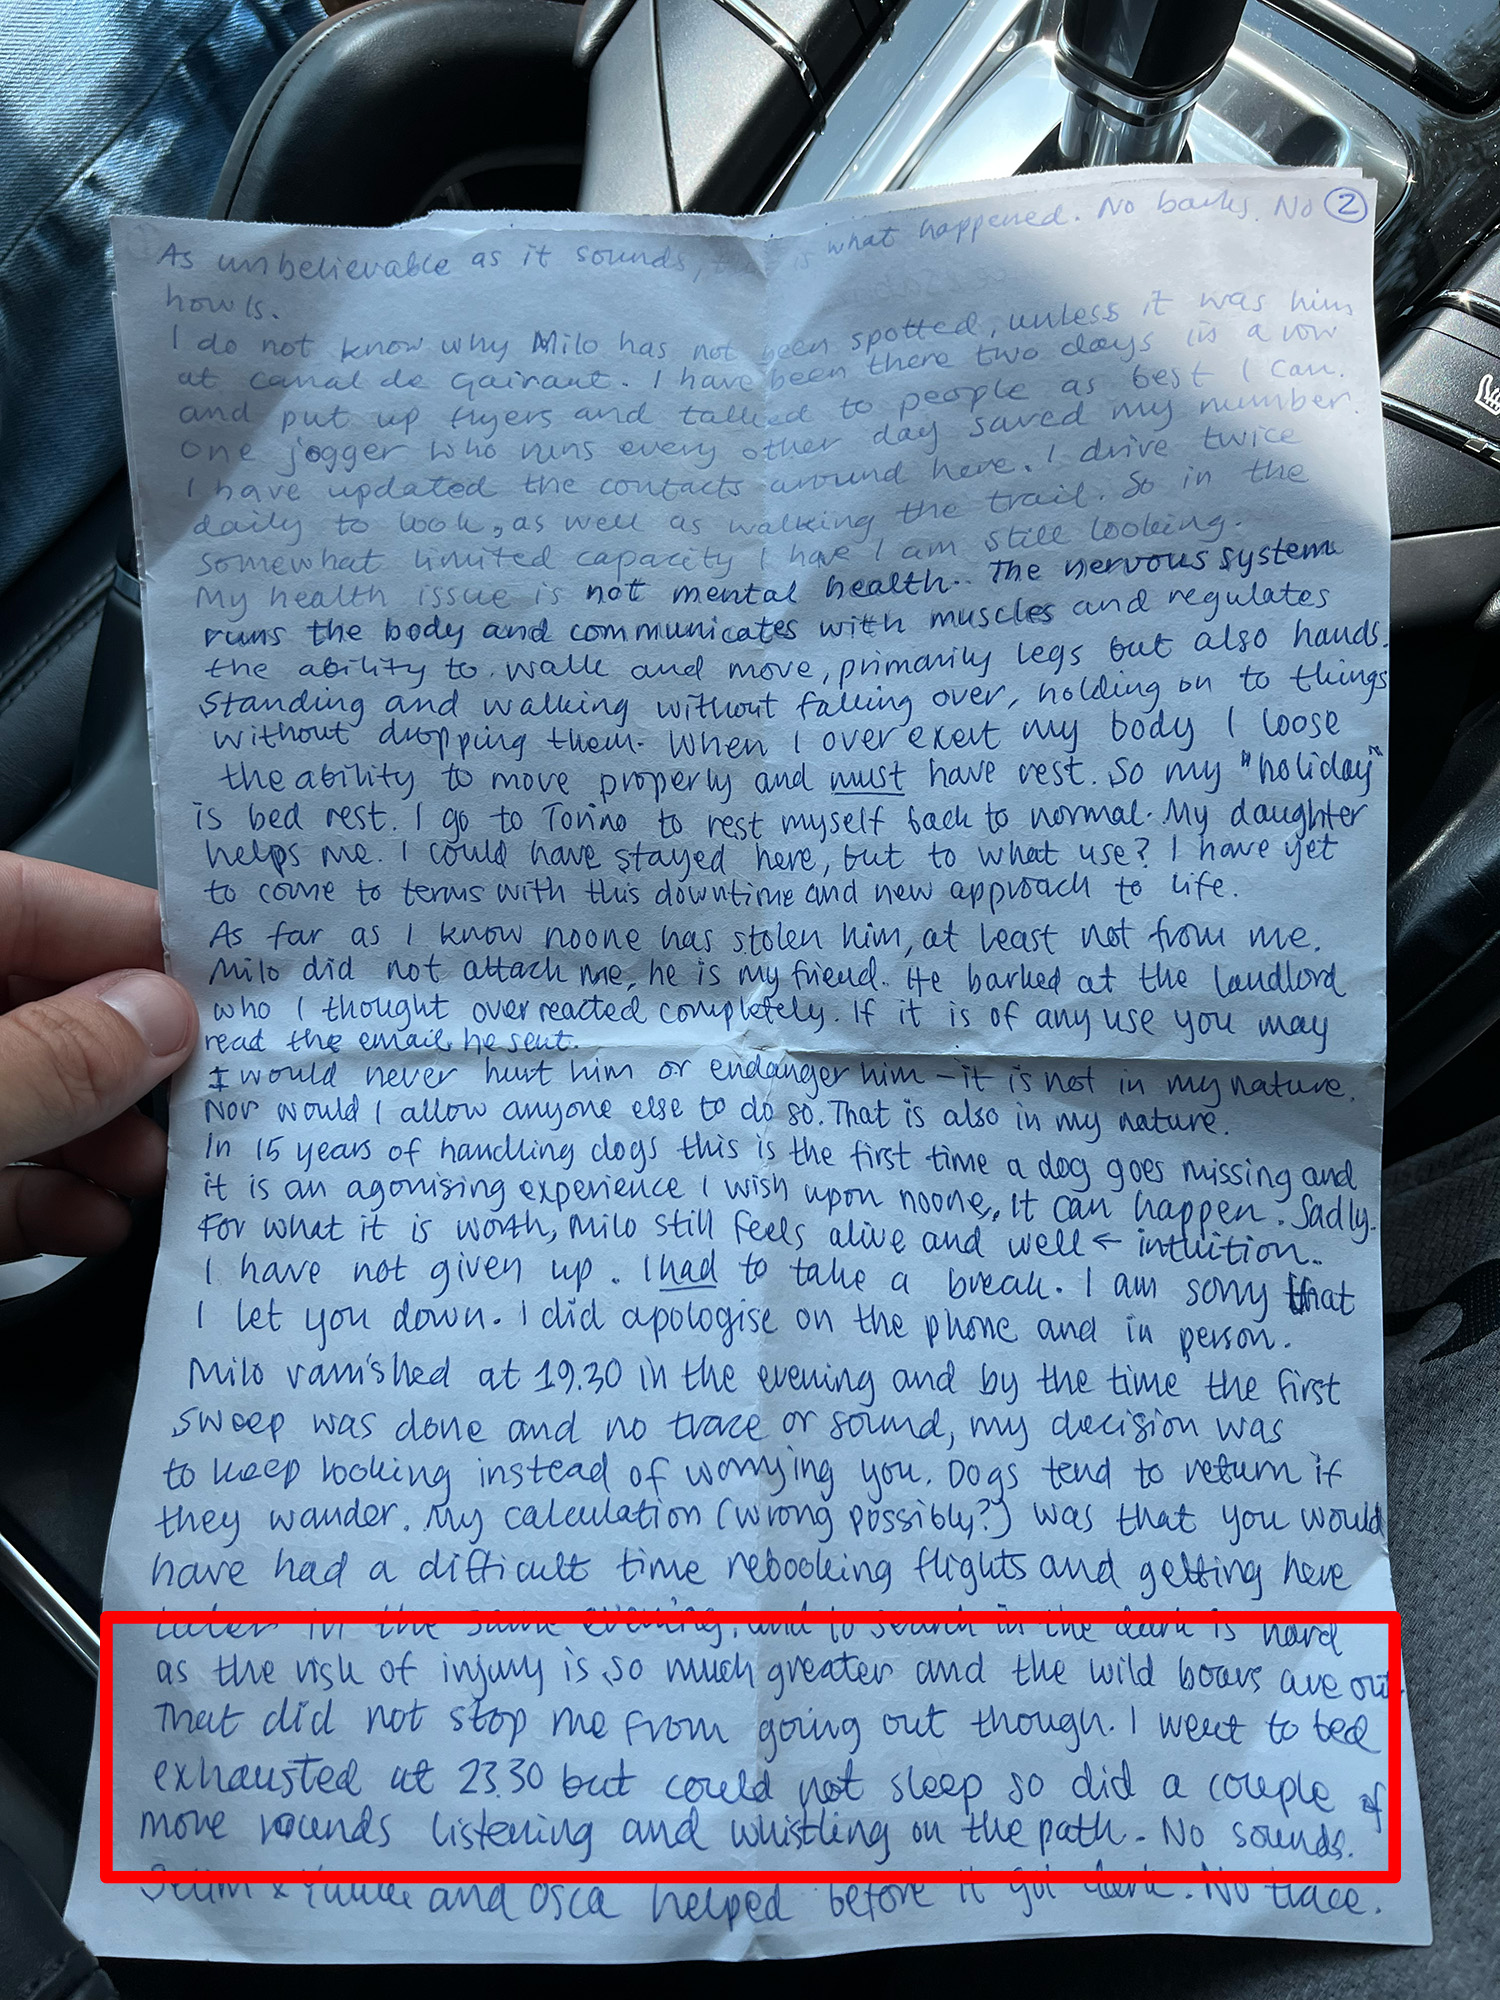 As unbelievable as it sounds, this is what happened. No barks. No ②
howls.
I do not know why Milo has not been spotted, unless it was him
at canal de Gairaut. I have been there two days in a row
and put up flyers and talked to people as best I can.
One jogger who runs every other day saved my number.
I have updated the contacts around here. I drive twice
daily to look, as well as walking the trail. So in the
somewhat limited capacity I have I am still looking.
My health issue is not mental health.. The nervous system
runs the body and communicates with muscles and regulates
the ability to walk and move, primarily legs but also hands.
Standing and walking without falling over, holding on to things
without dropping them. When I over exert my body I loose
the ability to move properly and must have rest. So my "holiday"
is bed rest. I go to Torino to rest myself back to normal. My daughter
helps me. I could have stayed here, but to what use? I have yet
to come to terms with this downtime and new approach to life.
As far as I know noone has stolen him, at least not from me.
Milo did not attack me, he is my friend. He barked at the landlord
who I thought over reacted completely. If it is of any use you may
read the email he sent.
I would never hurt him or endanger him - it is not in my nature.
Nor would I allow anyone else to do so. That is also in my nature.
In 15 years of handling dogs this is the first time a dog goes missing and
it is an agonising experience I wish upon noone,. It can happen. Sadly.
For what it is worth, Milo still feels alive and well ← intuition..
I have not given up. I had to take a break. I am sorry that
I let you down. I did apologise on the phone and in person.
Milo vanished at 19.30 in the evening and by the time the first
sweep was done and no trace or sound, my decision was
to keep looking instead of worrying you. Dogs tend to return if
they wander. My calculation (wrong possibly?) was that you would
have had a difficult time rebooking flights and getting here
later in the same evening. and to search in the dark is hard
as the risk of injury is so much greater and the wild boars are out.
That did not stop me from going out though. I went to bed
exhausted at 23.30 but could not sleep so did a couple of
more rounds listening and whistling on the path. No sounds.
and Osca helped before it got dark. No trace.